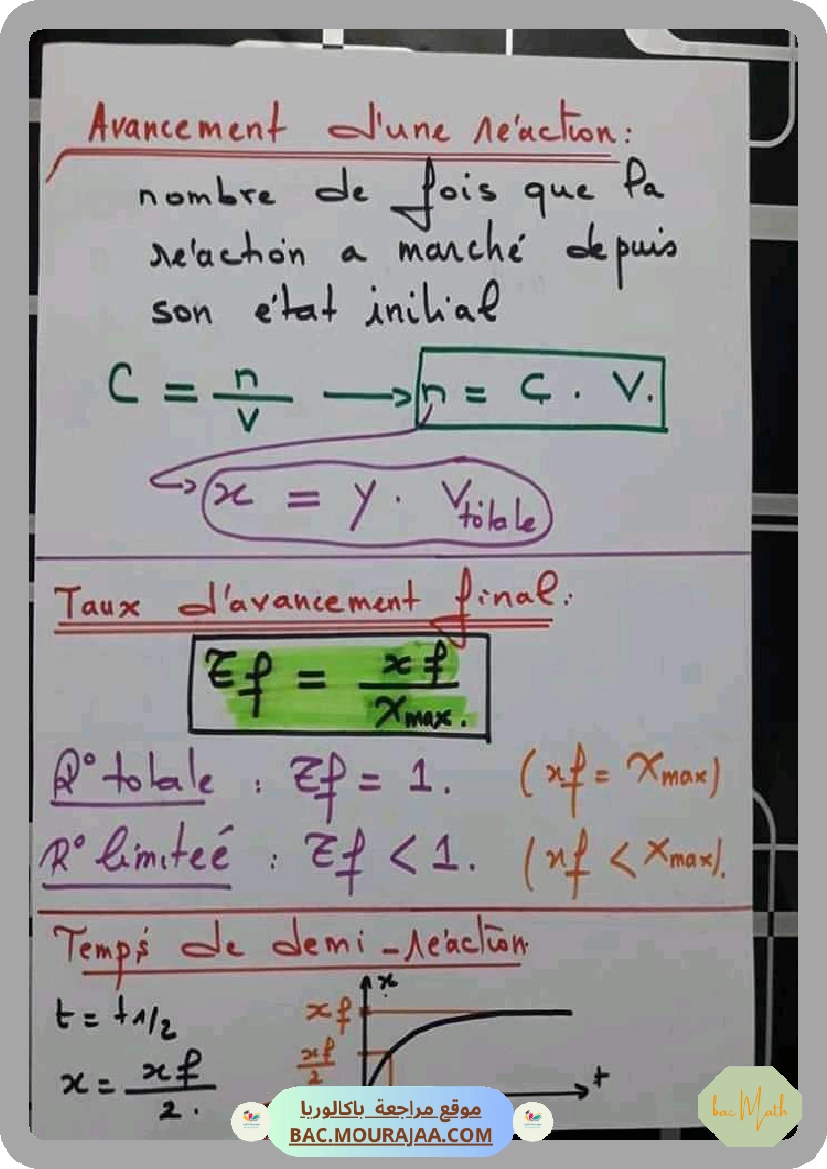 Avancement d'une réaction :
nombre de fois que la
réaction a marché depuis
son état initial
C = n/V → n = C . V.
x = y . Vtotale
Taux d'avancement final :
τf = xf/Xmax.
R° totale : τf = 1. (xf = Xmax)
R° limiteé : τf < 1. (xf < Xmax).
Temps de demi-réaction
t = t1/2
x = xf/2.
x
xf
xf/2
t
موقع مراجعة باكالوريا
BAC.MOURAJAA.COM
bac Math